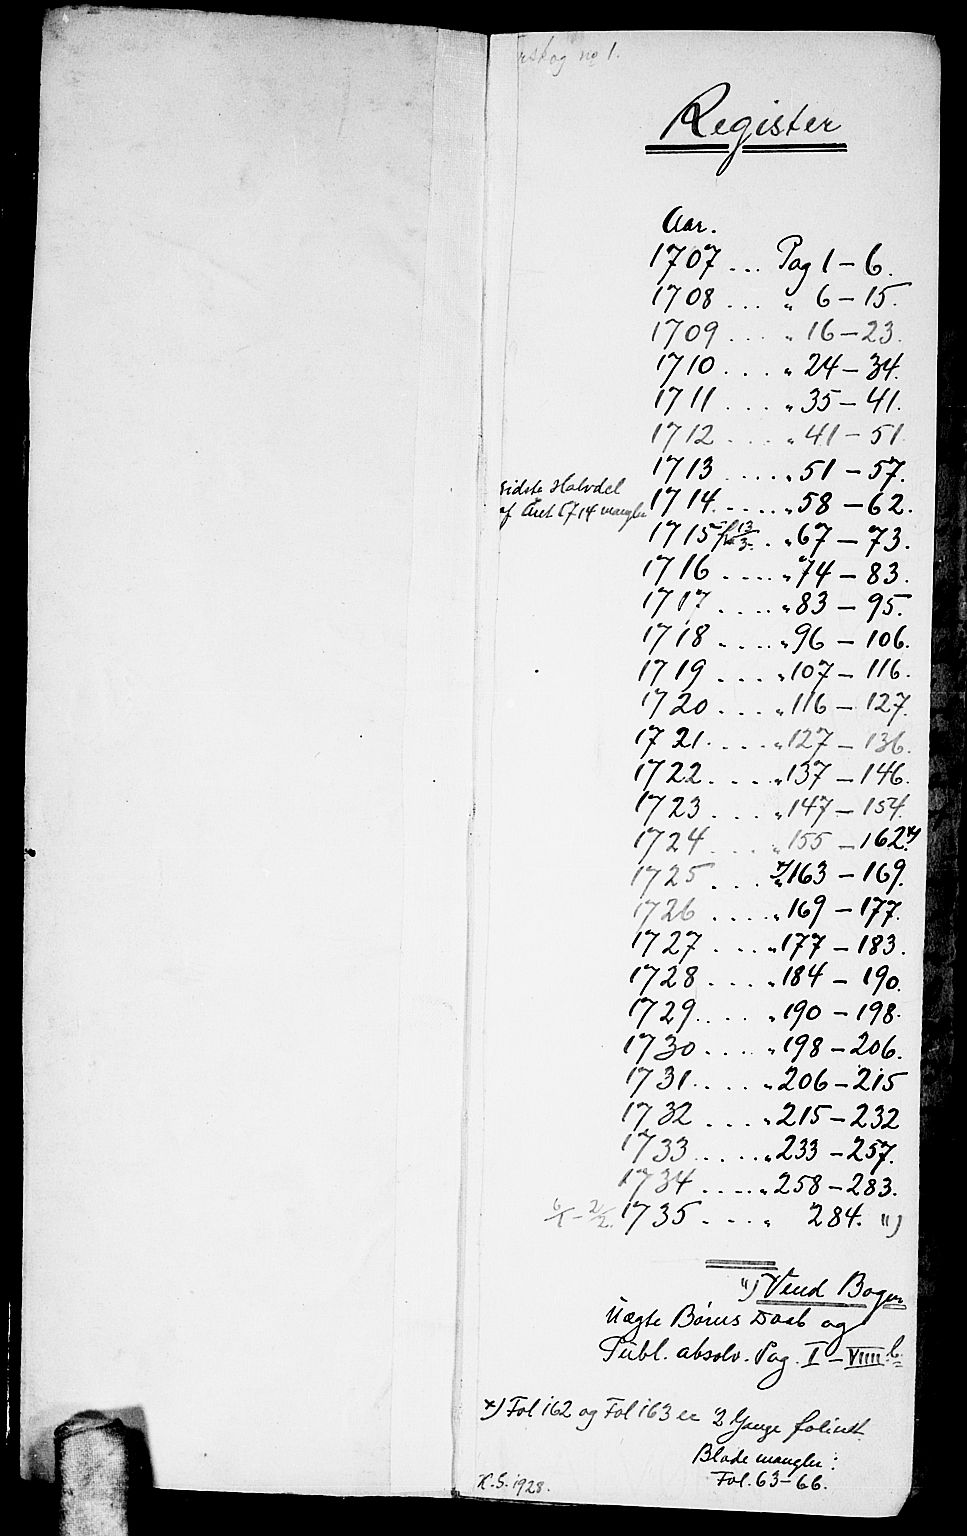 rsbog no 1.
Register
Aar.
1707 ... Pag 1 – 6.
1708 ... " 6 – 15.
1709 .... " 16 – 23.
1710 .... " 24 – 34.
1711 .... " 35 – 41.
1712 .... " 41 – 51.
1713 ..... " 51 – 57.
sidste Halvdel
af Året 1714 mangler
1714 ..... " 58 – 62.
1715 fr 13/3 .. " 67 – 73.
1716 .... " 74 – 83.
1717 .... " 83 – 95.
1718 .... " 96 – 106.
1719 .... " 107 – 116.
1720 .... " 116 – 127.
1721 .... " 127 – 136.
1722 .... " 137 – 146.
1723 .... " 147 – 154.
1724 .... " 155 – 162 *)
1725 .... *) " 163 – 169.
1726 .... " 169 – 177.
1727 .... " 177 – 183.
1728 .... " 184 – 190.
1729 .... " 190 – 198.
1730 .... " 198 – 206.
1731 .... " 206 – 215
1732 .... " 215 – 232
1733 .... " 233 – 257.
1734 .... " 258 – 283.
6/1 – 2/2. 1735 .... " 284. ")
") Vend Bogen
Uægte Børns Daab og
Publ. absolv. Pag. I – VIIII b.
*) Fol 162 og Fol 163 er 2 Gange folieret
Blade mangler:
Fol. 63 – 66.
K.S. 1928.